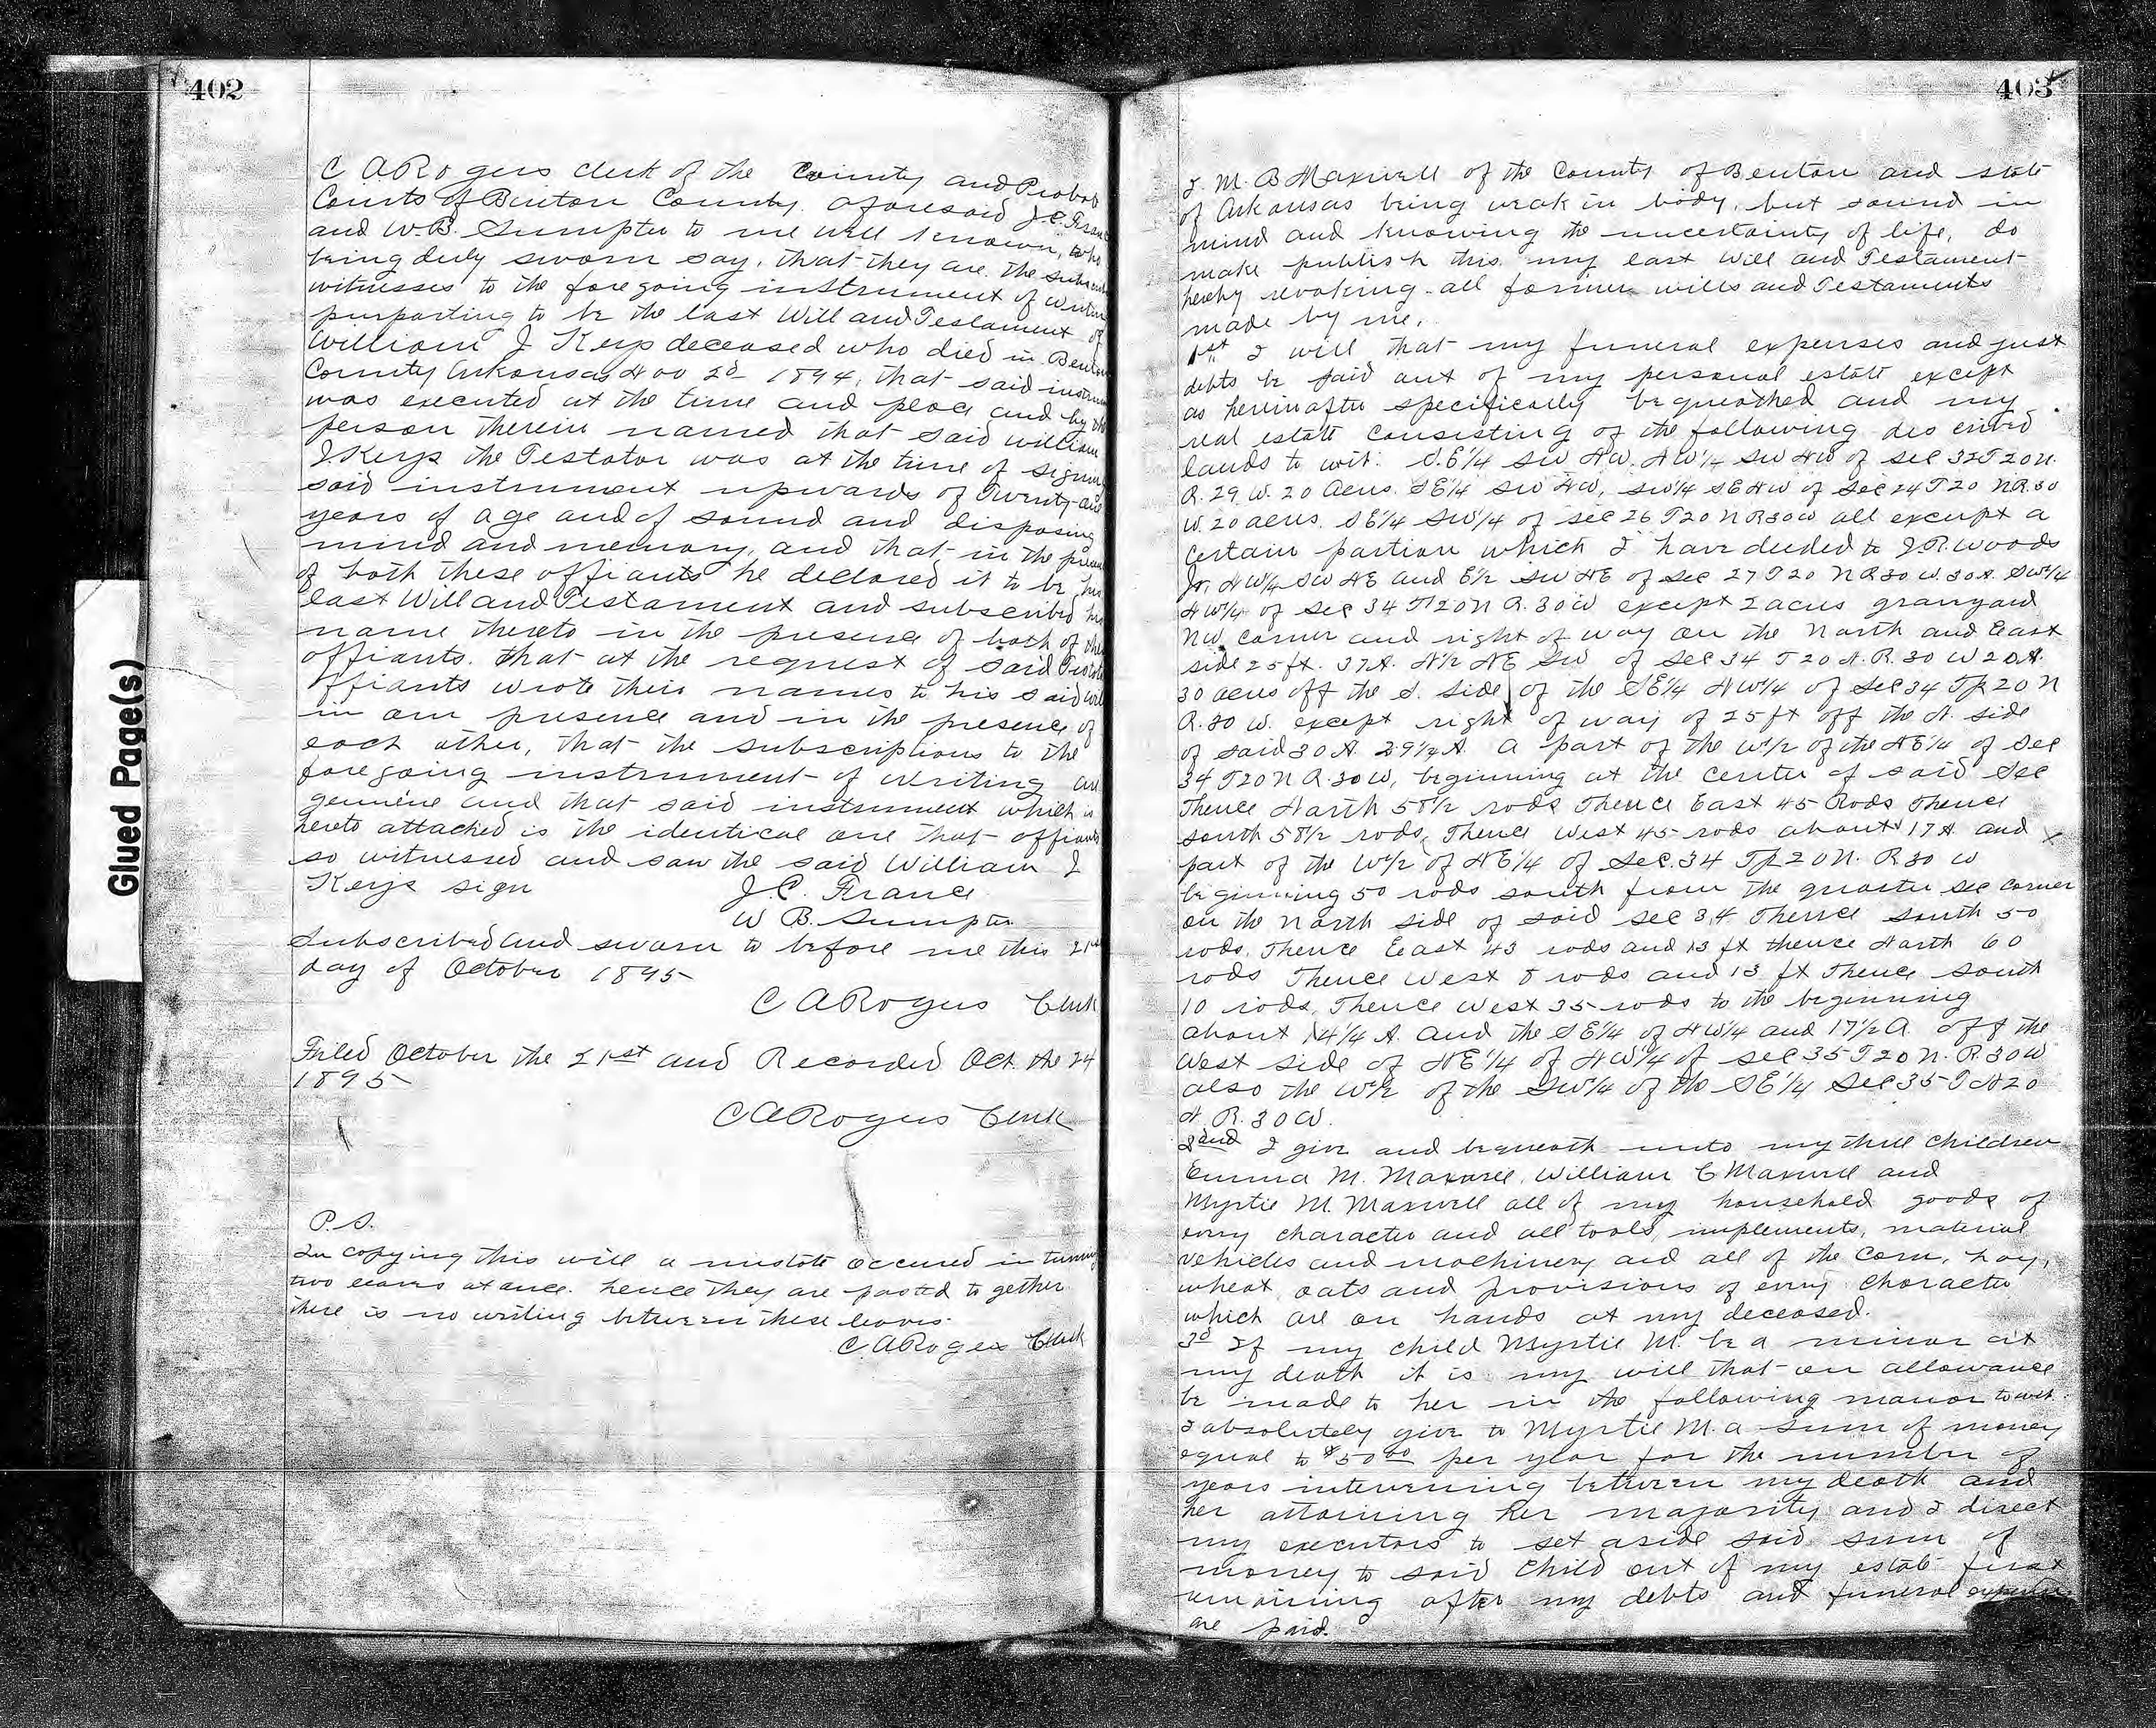 402
C A Rogers clerk of the County and Probat
Courts of Benton County aforesaid J.C. Franc
and W.B. Sumpter to me well known, who
being duly sworn say, that they are the
witnesses to the foregoing instrument of
purporting to be the last Will and Testament of
William J Keys deceased who died in Benton
County Arkansas Nov 2d 1894, that said
was executed at the time and place and by the
person therein named that said William
J Keys the Testator was at the time of
said instrument upwards of Twenty-
years of age and of sound and disposing
mind and memory, and that in the
of both these affiants he declared it to be his
last Will and Testament and subscribed his
name thereto in the presence of both of
affiants. that at the request of said
affiants wrote their names to his said
in our presence and in the presence of
each other, that the subscriptions to the
foregoing instrument of writing are
genuine and that said instrument which is
hereto attached is the identical one that
so witnessed and saw the said William J
Keys sign
J.C. France
W B. Sumpter
Subscribed and sworn to before me this 21st
day of October 1895
C A Rogers Clerk
Filed October the 21st and Recorded Oct. the 24
1895
C A Rogers Clerk
P.S.
In copying this will a mistake occured in
two leaves at once. hence they are pasted to gether
there is no writing between these leaves.
C A Rogers Clerk
Glued Page(s)
403
I M. B Maxwell of the County of Benton and state
of Arkansas being weak in body, but sound in
mind and knowing the uncertainty of life, do
make publish this my last Will and Testament
hereby revoking all former wills and Testaments
made by me.
1st I will that my funeral expenses and just
debts be paid out of my personal estate except
as hereinafter specifically bequeathed and my
real estate consisting of the following described
lands to wit: S.E¼ SW NW. NW¼ SW NW of Sec 32 T 20 N.
R. 29 W. 20 acres. SE¼ SW NW, SW¼ SE NW of Sec 24 T 20 N R 30
W. 20 acres. SE¼ SW¼ of Sec 26 T 20 N R 30 W all except a
certain portion which I have deeded to J.R. Woods
Jr, NW¼ SW NE and E½ SW NE of Sec 27 T 20 N R 30 W. 30 A. SW¼
NW¼ of Sec 34 T 20 N R. 30 W except 2 acres graveyard
NW. corner and right of way on the North and East
side 25 ft. 37 A. N½ NE SW of Sec 34 T 20 N. R. 30 W 20 A.
30 acres off the S. side of the SE¼ NW¼ of Sec 34 Tp 20 N
R. 30 W. except right of way of 25 ft off the N. side
of said 30 A 29¼ A. a part of the W½ of the NE¼ of Sec
34 T 20 N R. 30 W, beginning at the center of said Sec
Thence North 58½ rods Thence East 45 Rods Thence
south 58½ rods, Thence West 45 rods about 17 A and
part of the W½ of NE¼ of Sec. 34 Tp 20 N. R 30 W
beginning 50 rods south from the quarter sec corner
on the North side of said Sec 34 Thence south 50
rods. Thence East 43 rods and 13 ft thence North 60
rods Thence West 8 rods and 13 ft Thence south
10 rods, Thence West 35 rods to the beginning
about 14¼ A. and the SE¼ of NW¼ and 17½ A off the
West side of NE¼ of NW¼ of Sec 35 T 20 N. R. 30 W
also the W½ of the SW¼ of the SE¼ Sec 35 T N 20
N. R. 30 W.
2nd I give and bequeath unto my three children
Emma M. Maxwell, William C Maxwell and
Myrtie M. Maxwell all of my household goods of
every character and all tools, implements, material
vehicles and machinery and all of the corn, hay,
wheat, oats and provisions of every character
which are on hands at my deceased.
3d If my child Myrtie M. be a minor at
my death it is my will that an allowance
be made to her in the following manor to wit.
I absolutely give to Myrtie M. a sum of money
equal to $50.00 per year for the number of
years intervening between my death and
her attaining her majority and I direct
my executors to set aside said sum of
money to said child out of my estate first
remaining after my debts and funeral expenses
are paid.